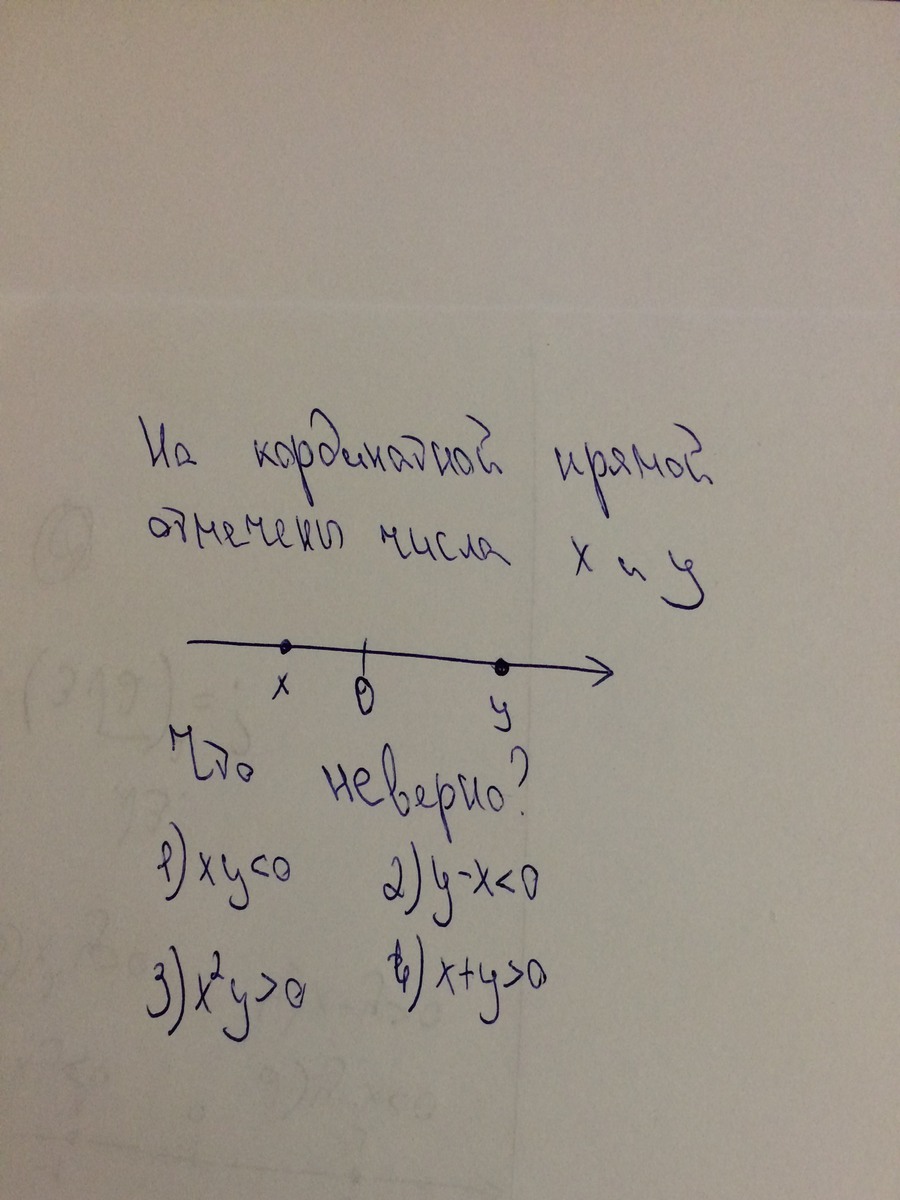 На кординатной прямой
отмечены числа x и y
x 0 y
Что неверно?
1) xy<0 2) y-x<0
3) x²y>0 4) x+y>0